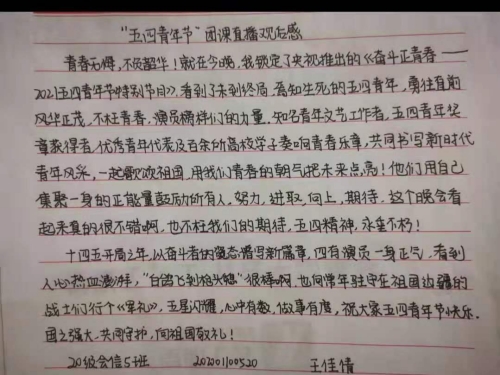 “五四青年节”团课直播观后感
青春无悔，不负韶华！就在今晚，我锁定了央视推出的《奋斗正青春——
2021五四青年节特别节目》，看到了未到终局，焉知生死的五四青年，勇往直前
风华正茂，不枉青春，演员榜样们的力量，知名青年文艺工作者，五四青年奖
章获得者，优秀青年代表及百余所高校学子奏响青春乐章，共同书写新时代
青年风采，一起歌颂祖国，用我们青春的朝气把未来点亮！他们用自己
集聚一身的正能量鼓励所有人，努力，进取，向上，期待，这个晚会看
起来真的很不错啊，也不枉我们的期待，五四精神，永垂不朽！
十四五开局之年，以奋斗者的姿态谱写新篇章，四有演员一身正气，看到
人心热血澎湃，“白鸽飞到枪头想”很棒啊，也向常年驻守在祖国边疆的
战士们行个《军礼》，五星闪耀，心中有数，做事有度，祝大家五四青年节快乐．
国之强大，共同守护，向祖国敬礼！
20级会信5班 202001100520 王佳倩